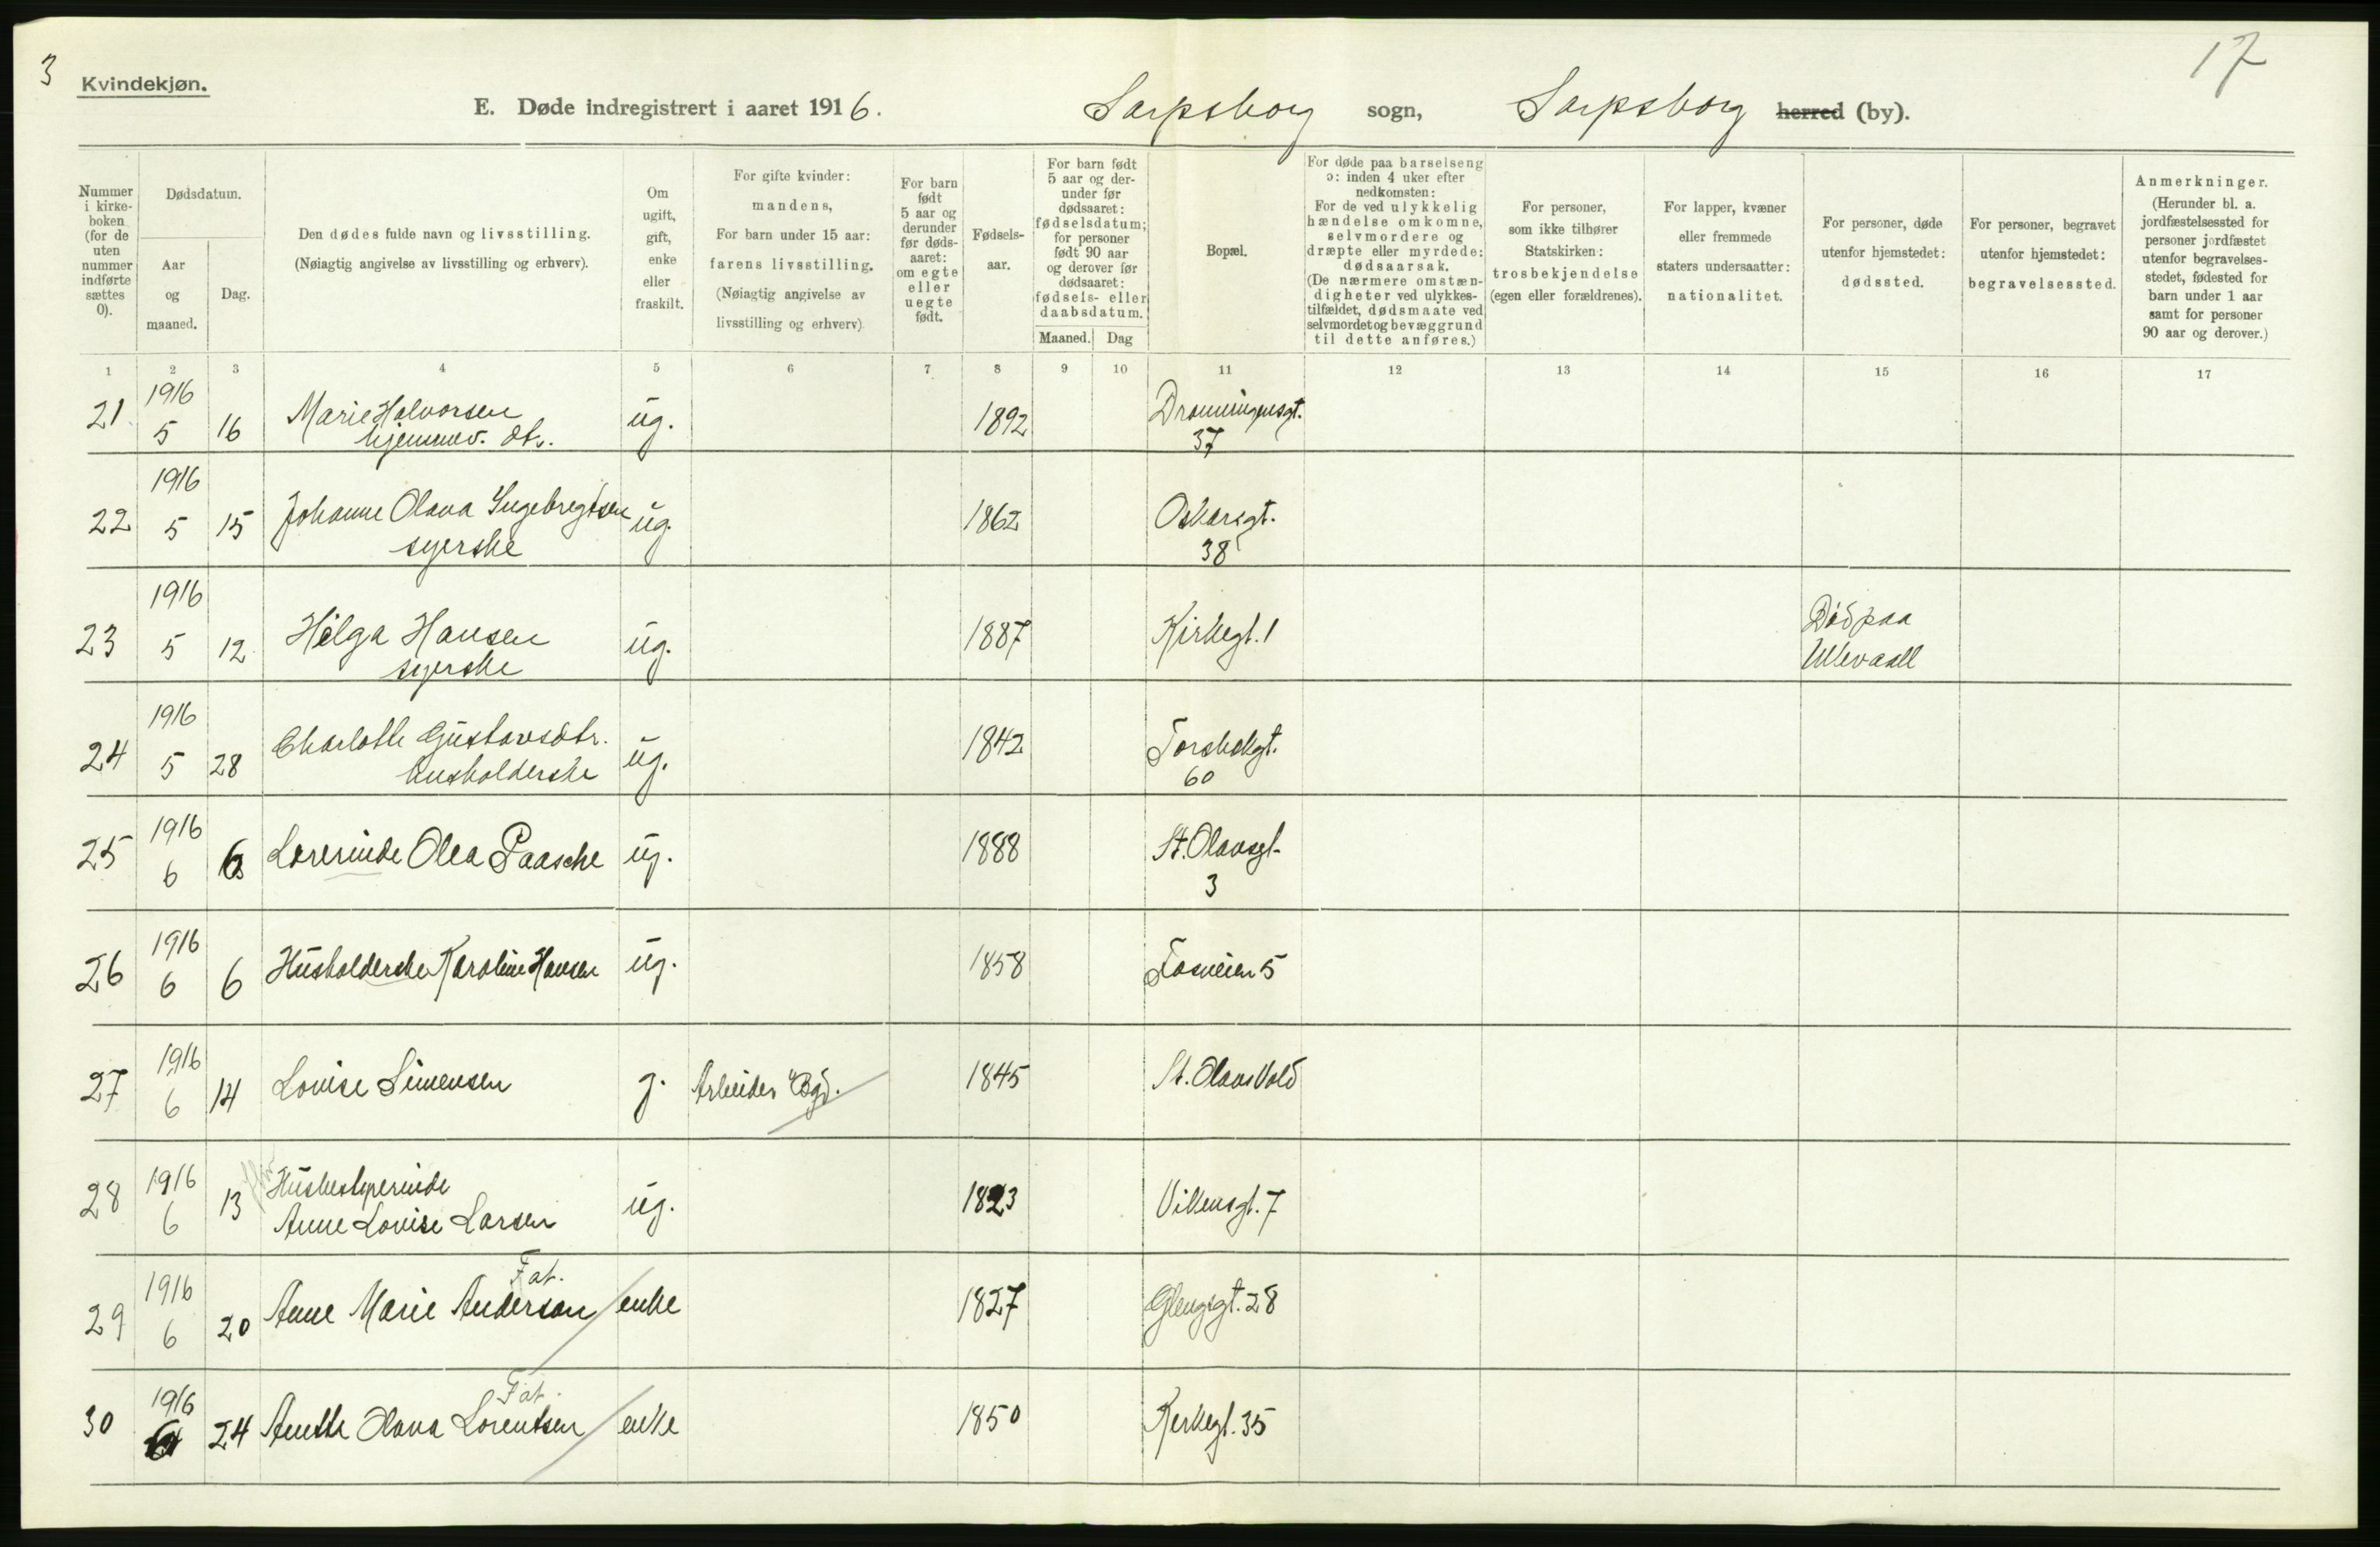 3
17
Kvindekjøn.
E. Døde indregistrert i aaret 1916. Sarpsborg sogn, Sarpsborg herred (by).
Nummer i kirkeboken (for de uten nummer indførte sættes 0).
Dødsdatum.
Aar og maaned.
Dag.
Den dødes fulde navn og livsstilling.
(Nøiagtig angivelse av livsstilling og erhverv).
Om ugift, gift, enke eller fraskilt.
For gifte kvinder: mandens, For barn under 15 aar: farens livsstilling. (Nøiagtig angivelse av livsstilling og erhverv)
For barn født 5 aar og derunder før dødsaaret: om egte eller uegte født.
Fødselsaar.
For barn født 5 aar og derunder før dødsaaret: fødselsdatum; for personer født 90 aar og derover før dødsaaret: fødsels- eller daabsdatum.
Maaned. Dag
Bopæl.
For døde paa barselseng ɔ: inden 4 uker efter nedkomsten: For de ved ulykkelig hændelse omkomne, selvmordere og dræpte eller myrdede: dødsaarsak. (De nærmere omstændigheter ved ulykkestilfældet, dødsmaate ved selvmordet og bevæggrund til dette anføres.)
For personer, som ikke tilhører Statskirken: trosbekjendelse (egen eller forældrenes).
For lapper, kvæner eller fremmede staters undersaatter: nationalitet.
For personer, døde utenfor hjemstedet: dødssted.
For personer, begravet utenfor hjemstedet: begravelsessted.
Anmerkninger. (Herunder bl. a. jordfæstelsessted for personer jordfæstet utenfor begravelsesstedet, fødested for barn under 1 aar samt for personer 90 aar og derover.)
1 2 3 4 5 6 7 8 9 10 11 12 13 14 15 16 17
21 1916 5 16 Marie Halvorsen hjemmev. dtr. ug. 1892 Dronningensgt. 37
22 1916 5 15 Johanne Olava Ingebregtsen syerske ug. 1862 Oskarsgt. 38
23 1916 5 12 Helga Hansen syerske ug. 1887 Kirkegt. 1 Död paa Ullevaall
24 1916 5 28 Charlotte Gustavsdtr. husholderske ug. 1842 Torsbekgt. 60
25 1916 6 6 Lærerinde Olea Paasche ug. 1888 St. Olavsgt. 3
26 1916 6 6 Husholderske Karoline Hansen ug. 1858 Tosveien 5
27 1916 6 14 Lovise Simensen g. Arbeider Bgd. 1845 St. Olavs Vold
28 1916 6 13 Husbestyrerinde Anne Lovise Larsen ug. 1823 Vikensgt. 7
29 1916 6 20 Anne Marie Anderson Fat. enke 1827 Glengsgt. 28
30 1916 6 24 Anette Olava Lorentsen Fat. enke 1850 Kerkegt. 35